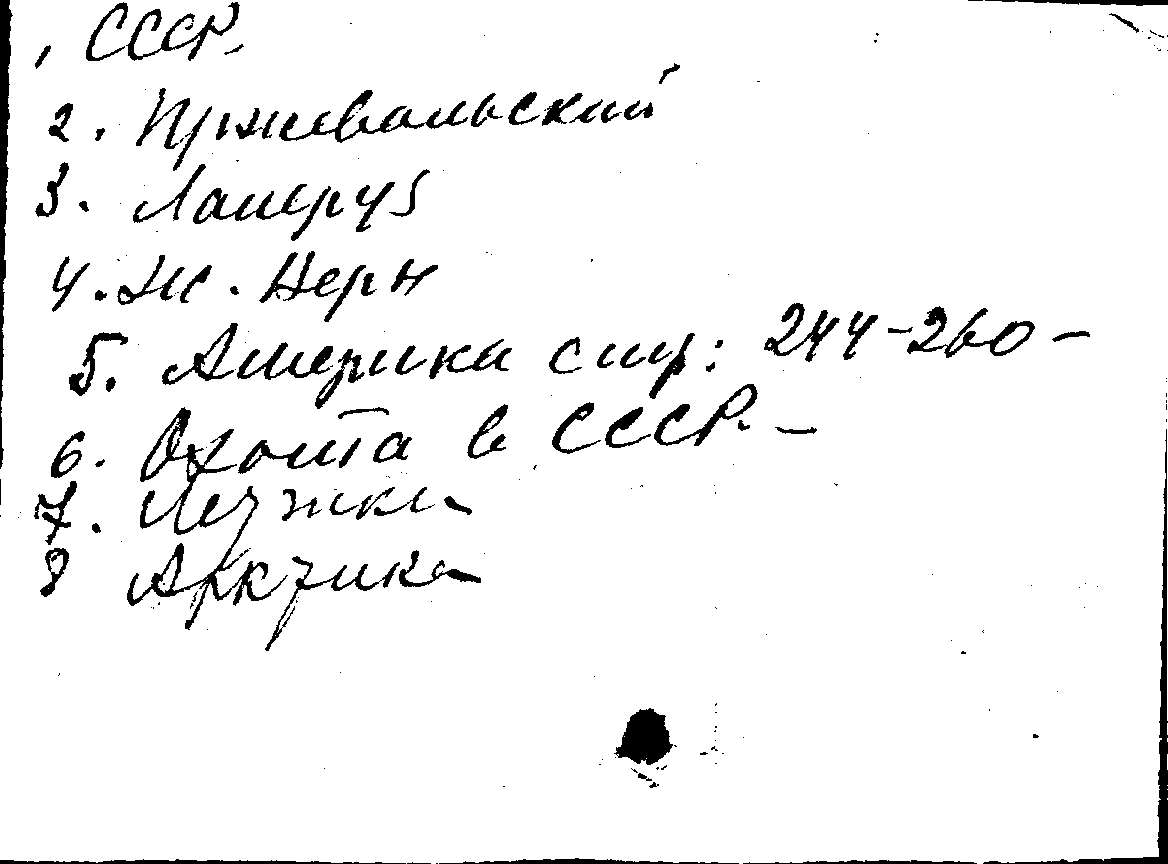 1 СССР.
2. Пржевальский
3. Лаперуз
4. Ж. Верн
5. Америка стр: 244-260-
6. Охота в СССР. -
7.
8 Арктика